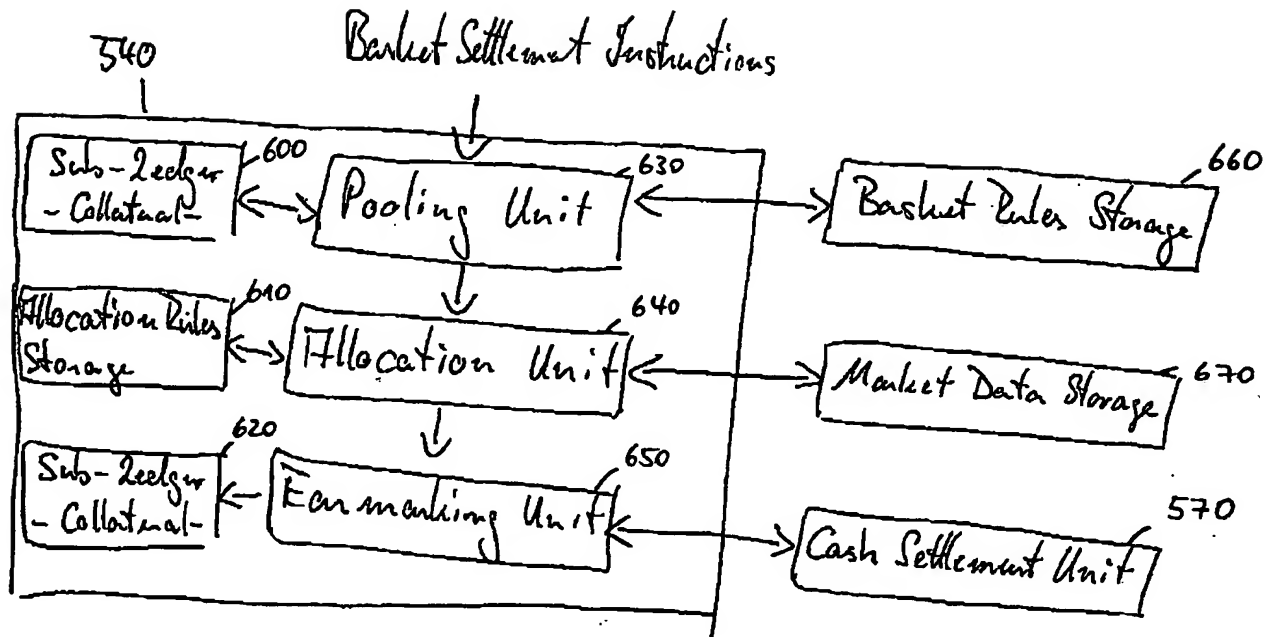 540
Basket Settlement Instructions
Sub-Ledger
- Collateral -
600
Pooling Unit
630
Basket Rules Storage
660
Allocation Rules
Storage
610
Allocation Unit
640
Market Data Storage
670
Sub-Ledger
- Collateral -
620
Earmarking Unit
650
Cash Settlement Unit
570